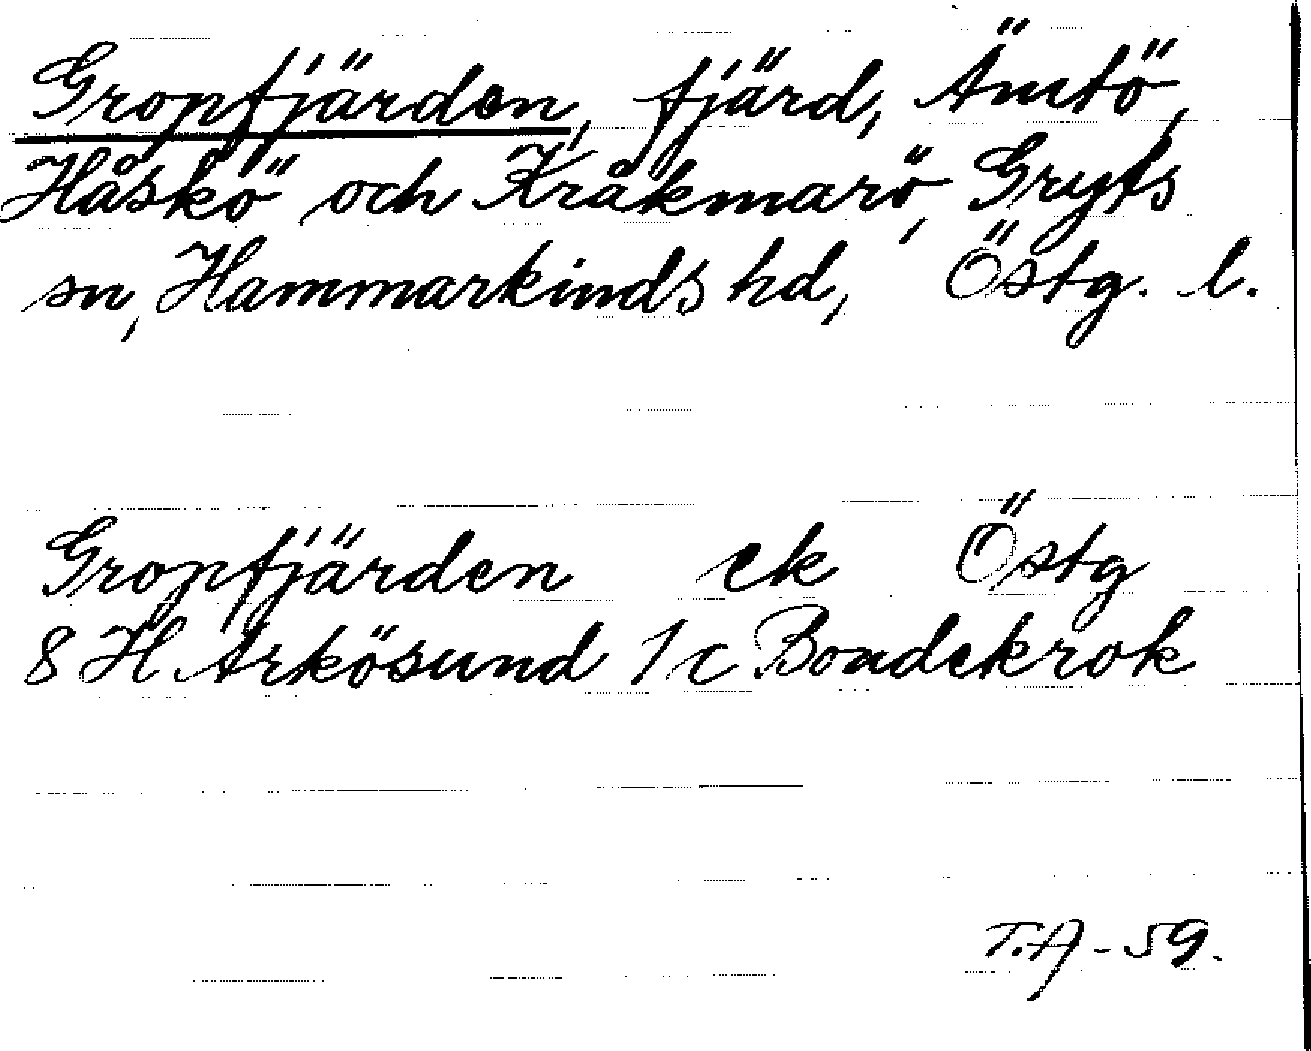 Gropfjärden, fjärd, Ämtö,
Håskö och Kråkmarö, Gryts
sn, Hammarkinds hd, Östg. l.
Gropfjärden ek Östg
8 H Arkösund 1c Bondekrok
T.A - 59.